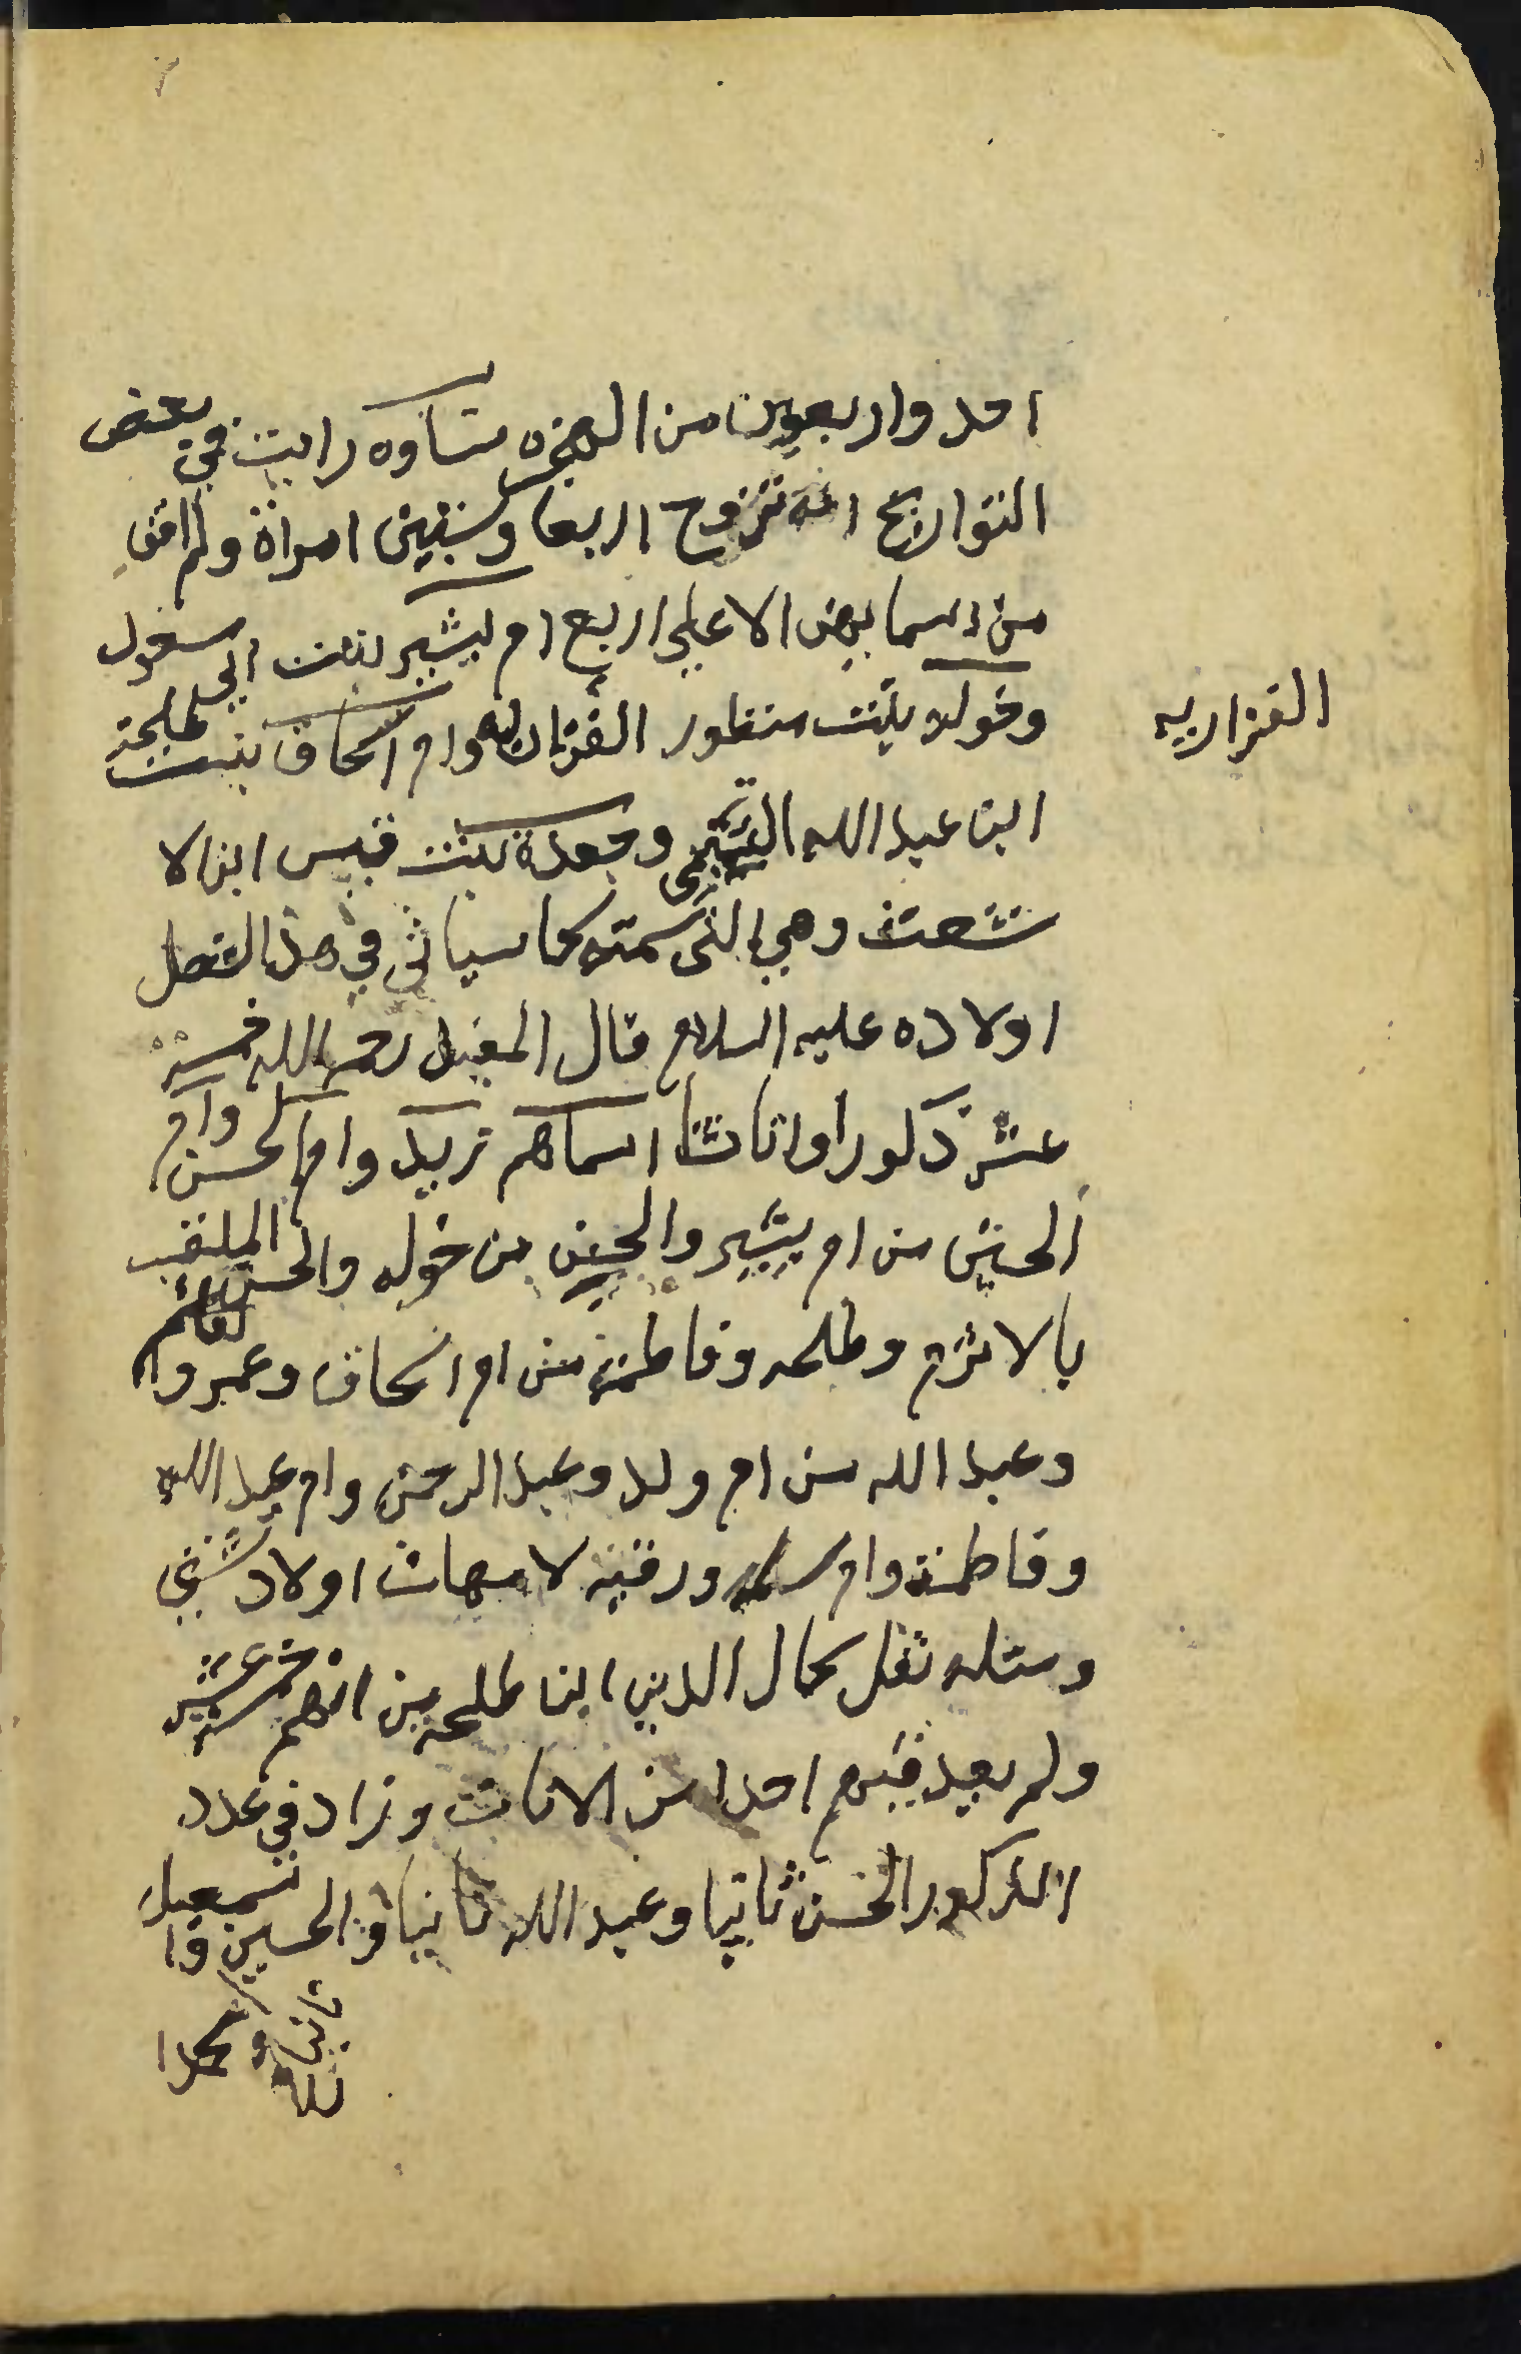 احد واربعين من الهجره نساوه رايت في بعض
التواريخ انه تزوج اربعا وستين امراة ولم اقف
من اسمايهن الا علي اربع ام بشير بنت ابي مسعود
وخوله بنت منظور الفزاريه وام اسحاق بنت طلحة
الفزاريه
ابن عبد الله التيمي وجعدة بنت قيس ابن الا
شعث وهي التي سمته كما سياتي في هذا الفصل
اولاده عليه السلام قال المفيد رحمه الله خمسة
عشر ذكورا واناثا اسماهم زيد وام الحسن وام
الحسين من ام بشير والحسن من خوله والحسين الملقب
بالاثرم وطلحه وفاطمة من ام اسحاق وعمرو والقاسم
وعبد الله من ام ولد وعبد الرحمن وام عبد الله
وفاطمة وام سلمه ورقيه لامهات اولاد شتي
ومثله نقل كمال الدين ابن طلحه من انهم خمسة عشر
ولم يعد فيهم احدا من الاناث وزاد في عدد
الذكور الحسن ثانيا وعبد الله ثانيا والحسين واسمعيل
ومحمدا